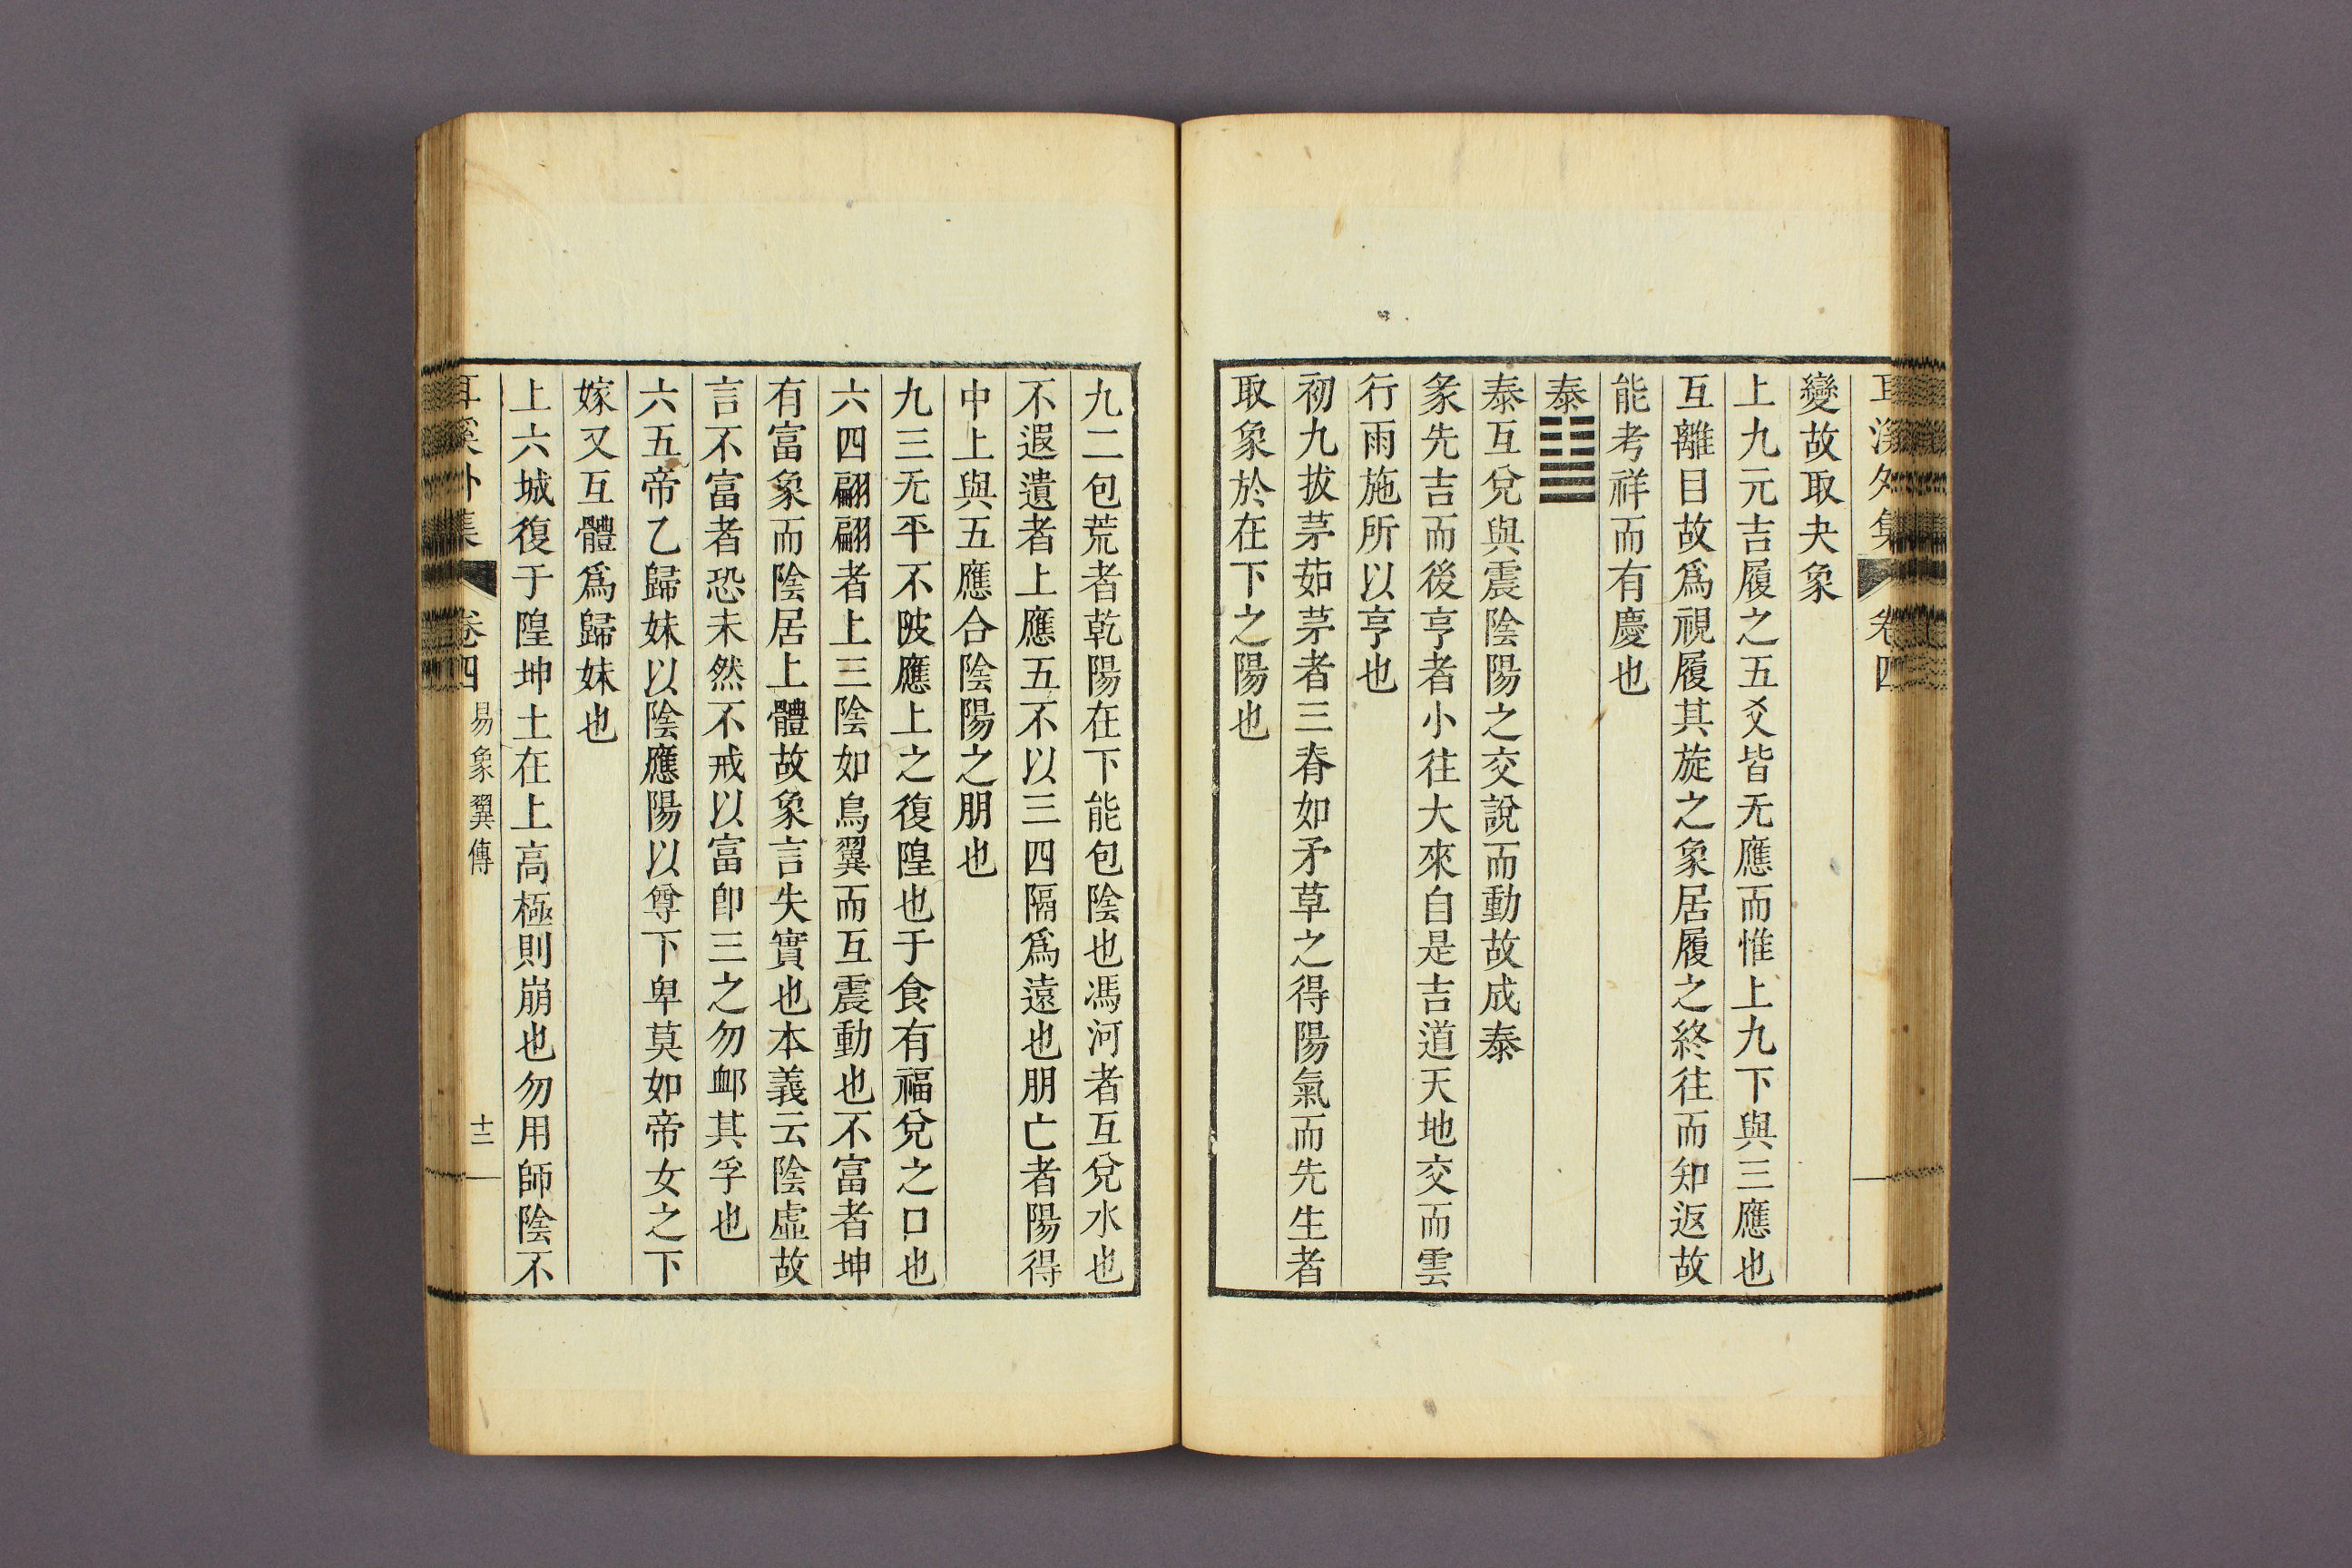 耳溪外集 卷四
變故取夬象
上九元吉履之五爻皆无應而惟上九下與三應也
互離目故爲視履其旋之象居履之終往而知返故
能考祥而有慶也
泰䷊
泰互兌與震陰陽之交說而動故成泰
彖先吉而後亨者小往大來自是吉道天地交而雲
行雨施所以亨也
初九拔茅茹茅者三脊如矛草之得陽氣而先生者
取象於在下之陽也
九二包荒者乾陽在下能包陰也馮河者互兌水也
不遐遺者上應五不以三四隔爲遠也朋亡者陽得
中上與五應合陰陽之朋也
九三无平不陂應上之復隍也于食有福兌之口也
六四翩翩者上三陰如鳥翼而互震動也不富者坤
有富象而陰居上體故象言失實也本義云陰虛故
言不富者恐未然不戒以富卽三之勿䘏其孚也
六五帝乙歸妹以陰應陽以尊下卑莫如帝女之下
嫁又互體爲歸妹也
上六城復于隍坤土在上高極則崩也勿用師陰不
耳溪外集 卷四 易象翼傳 十三